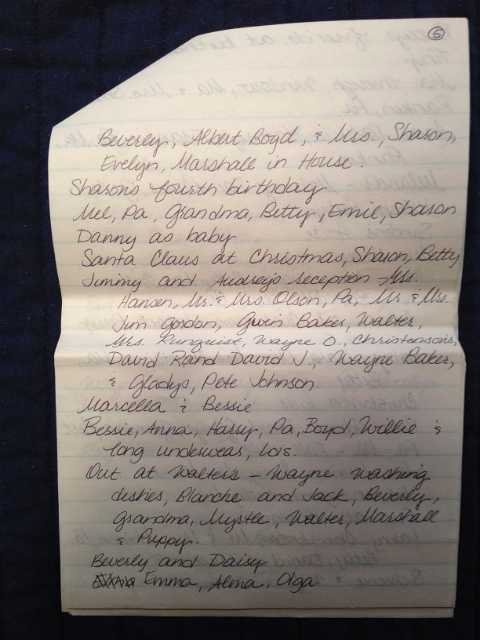 5
Beverly, Albert Boyd, & Mrs., Sharon,
Evelyn, Marshall in House.
Sharon's fourth birthday
Mel, Pa, Grandma, Betty, Emil, Sharon
Danny as baby
Santa Claus at Christmas, Sharon, Betty
Jimmy and Audrey's reception - Mrs.
Hansen, Mr. & Mrs. Olson, Pa, Mr. & Mrs.
Jim Gordon, Gwin Baker, Walter,
Mrs. Wayne O., Christensons,
David R and David J., Wayne Baker,
& Gladys, Pete Johnson
Marcella & Bessie
Bessie, Anna, Harry, Pa, Boyd, Willie &
long underwear, Lois.
Out at Walters - Wayne washing
dishes, Blanche and Jack, Beverly,
Grandma, Myrtle, Walter, Marshall
& Puppy.
Beverly and Daisy
Emma, Alma, Olga